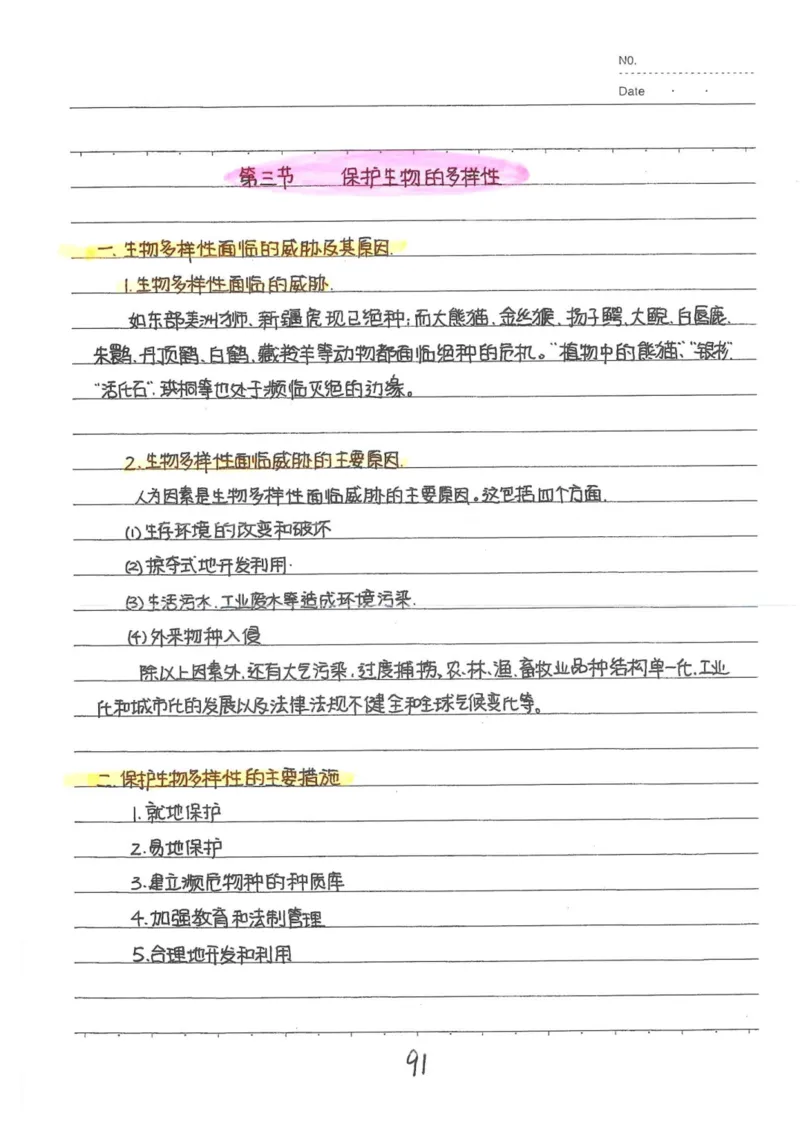 NO.
Date
第三节 保护生物的多样性
一. 生物多样性面临的威胁及其原因.
1.生物多样性面临的威胁.
如东部美洲狮、新疆虎现已绝种;而大熊猫、金丝猴、扬子鳄、大鸨、白唇鹿、
朱鹮、丹顶鹤、白鹤、藏羚羊等动物都面临绝种的危机。“植物中的熊猫”、“银杉”、
“活化石”、珙桐等也处于濒临灭绝的边缘。
2.生物多样性面临威胁的主要原因.
人为因素是生物多样性面临威胁的主要原因。这包括四个方面.
(1)生存环境的改变和破坏
(2)掠夺式地开发利用.
(3)生活污水.工业废水等造成环境污染.
(4)外来物种入侵
除以上因素外,还有大气污染,过度捕捞,农、林、渔、畜牧业品种结构单一化,工业
化和城市化的发展以及法律法规不健全和全球气候变化等。
二. 保护生物多样性的主要措施
1.就地保护
2.易地保护
3.建立濒危物种的种质库
4.加强教育和法制管理
5.合理地开发和利用
91